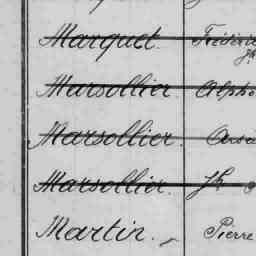 Marquet. Frédéric
Marsollier. Alpho
Marsollier. Arsè
Marsollier. Jh
Martin. Pierre